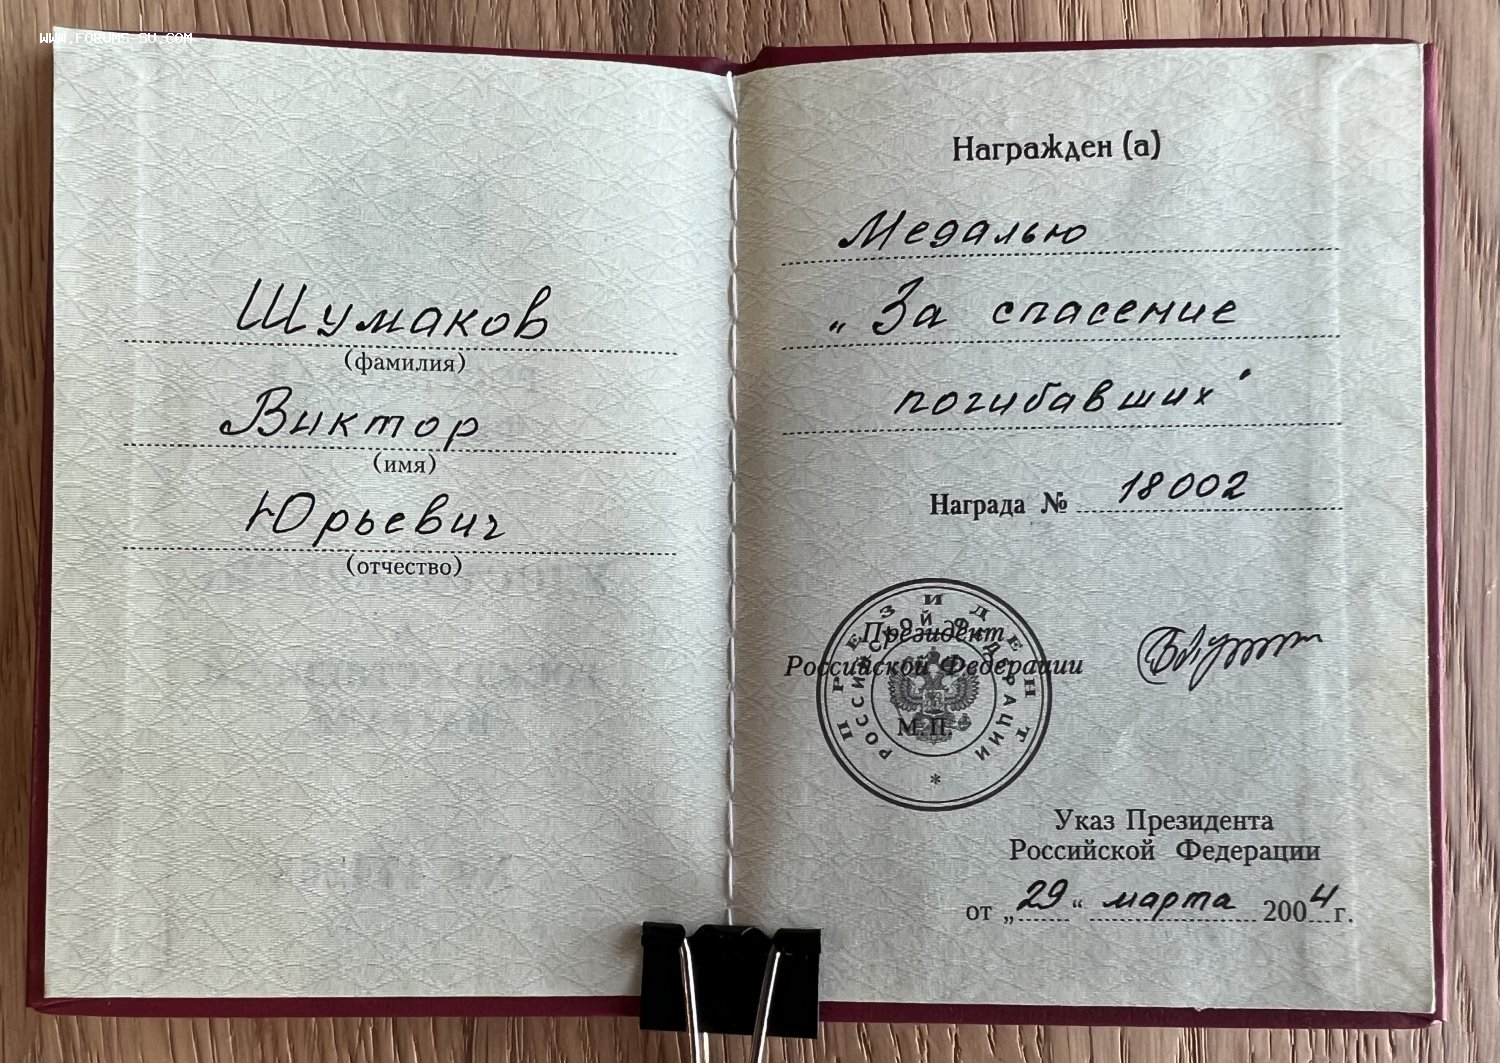 www.forums-su.com
Шумаков
(фамилия)
Виктор
(имя)
Юрьевич
(отчество)
Награжден (а)
Медалью
„За спасение
погибавших"
Награда № 18002
ПРЕЗИДЕНТ
РОССИЙСКОЙ ФЕДЕРАЦИИ
*
Президент
Российской Федерации
М.П.
Указ Президента
Российской Федерации
от „29“ марта 2004 г.